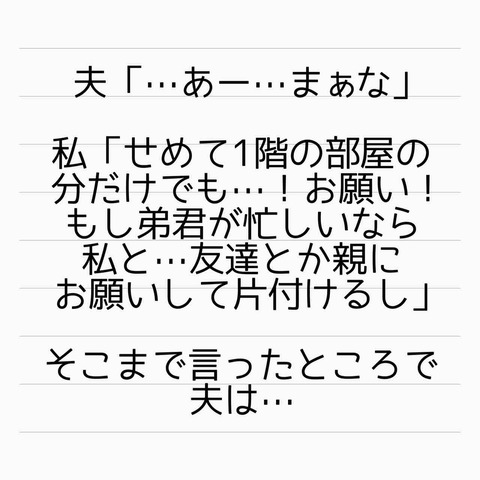 夫「…あー…まぁな」
私「せめて1階の部屋の
分だけでも…！お願い！
もし弟君が忙しいなら
私と…友達とか親に
お願いして片付けるし」
そこまで言ったところで
夫は…